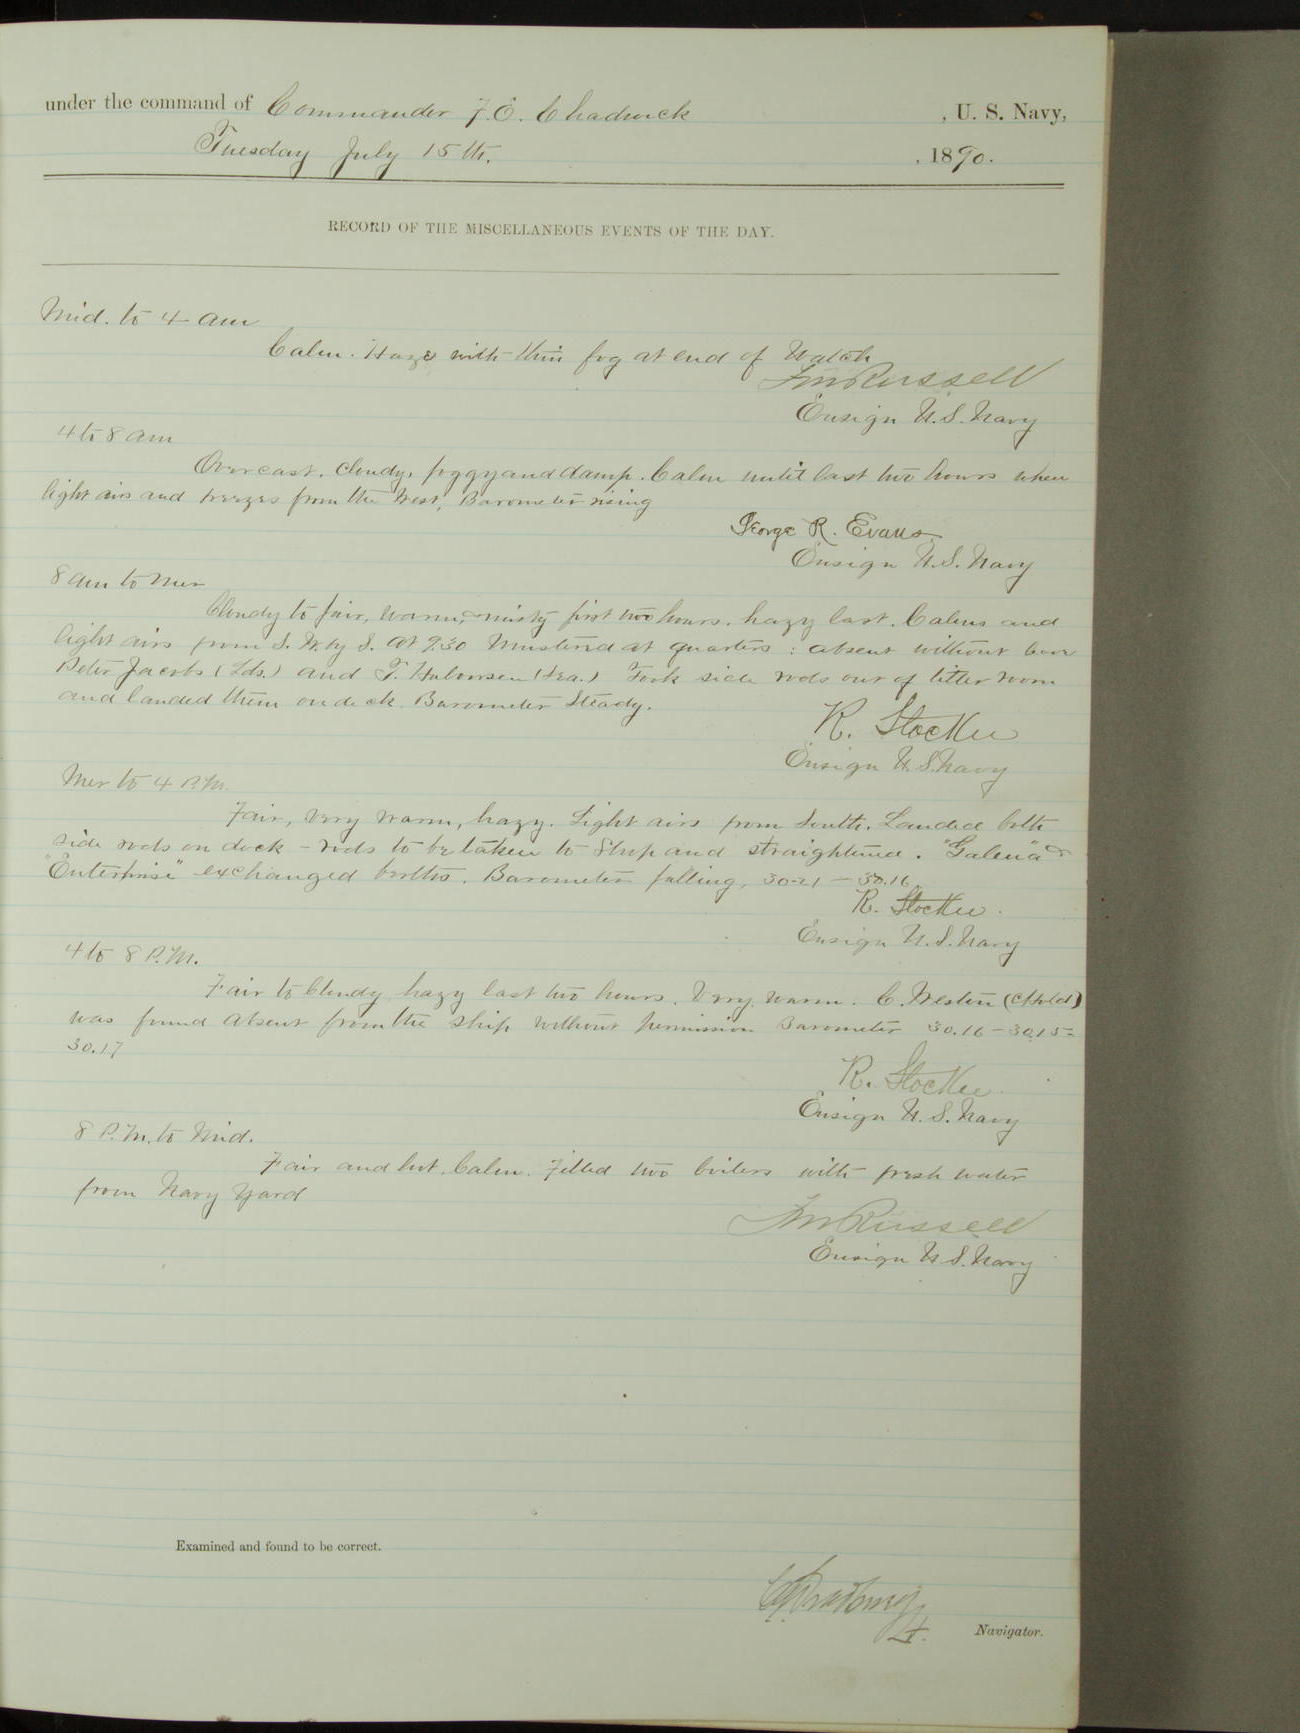 under the command of Commander F. E. Chadwick , U. S. Navy,
Tuesday July 15th. , 1890.
RECORD OF THE MISCELLANEOUS EVENTS OF THE DAY.
Mid. to 4 am
Calm. Haze with thin fog at end of Watch
Russell
Ensign U.S. Navy
4 to 8 am
Overcast. Cloudy, foggy and damp. Calm until last two hours when
light airs and breezes from the West, Barometer rising
George R. Evans
Ensign U.S. Navy
8 am to Mer
Cloudy to fair, warm, misty first two hours. hazy last. Calms and
light airs from S.W. by S. At 9.30 Mustered at quarters : absent without leave
Peter Jacobs (Lds.) and T. Halvorsen (Sea.) Took side rods out of tiller room
and landed them on deck. Barometer Steady.
R. Stocker
Ensign U.S. Navy
Mer to 4 P.M.
Fair, very warm, hazy. Light airs from South. Landed both
side rods on dock – rods to be taken to Shop and straightened. "Galena" &
"Enterprise" exchanged berths. Barometer falling, 30.21 – 30.16
R. Stocker.
Ensign U.S. Navy
4 to 8 P.M.
Fair to Cloudy hazy last two hours. Very warm. C. Westen
was found absent from the ship without permission Barometer 30.16 – 30.15 –
30.17
R. Stocker.
Ensign U.S. Navy
8 P.M. to Mid.
Fair and hot. Calm. Filled two boilers with fresh water
from Navy Yard
Russell
Ensign U.S. Navy
Examined and found to be correct.
Navigator.